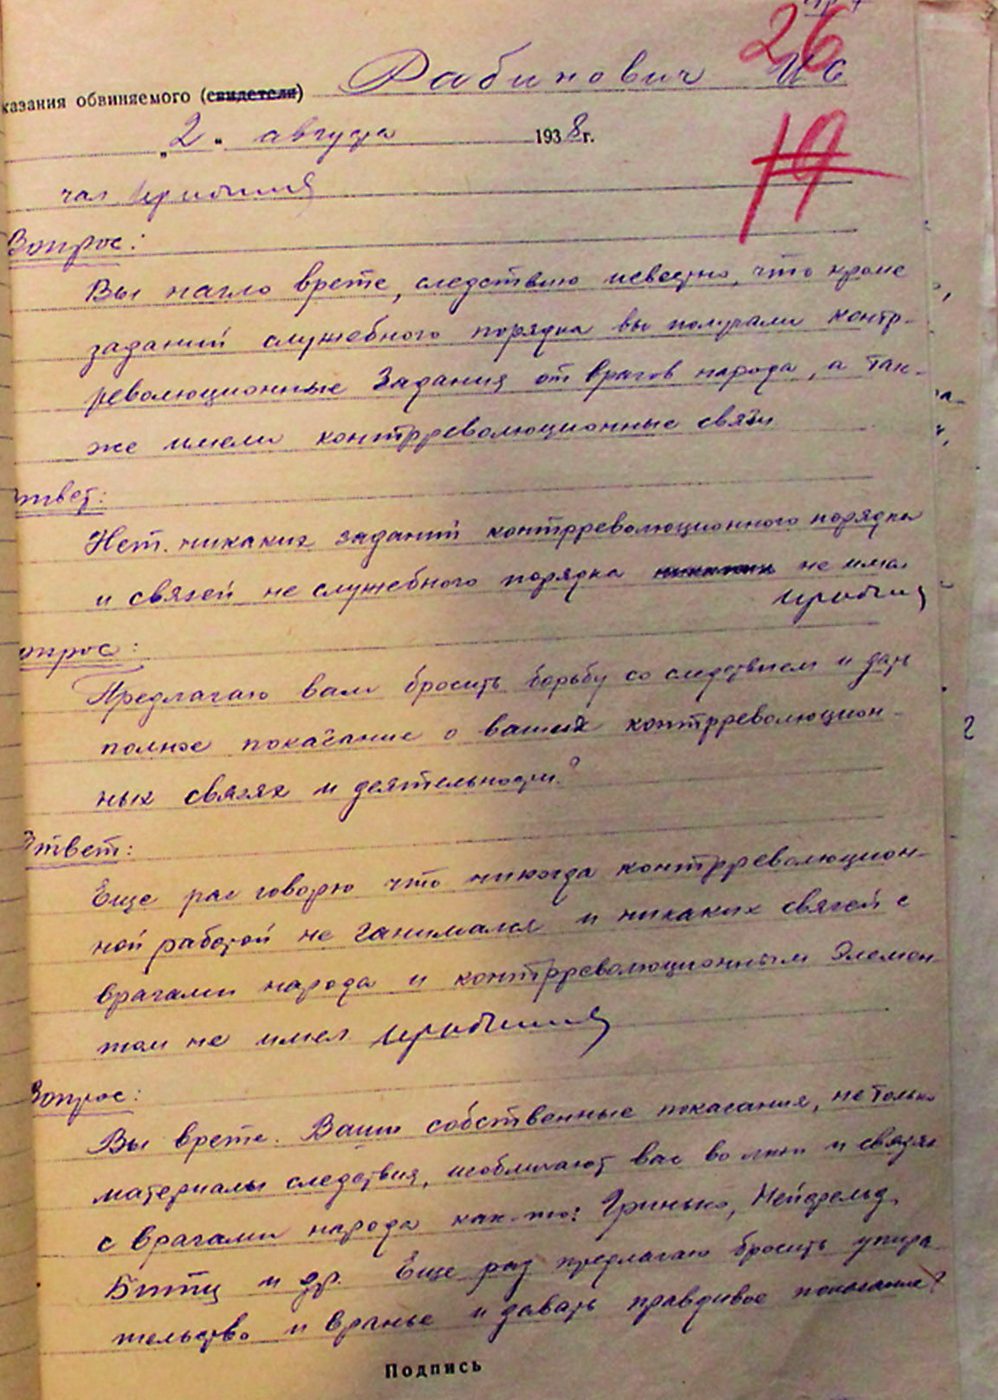 26
казания обвиняемого (свидетели) Рабинович И С
„2“ августа 1938 г.
19
Вопрос:
Вы нагло врете, следствию известно, что кроме
заданий служебного порядка вы получали контр-
революционные задания от врагов народа, а так-
же имели контрреволюционные связи
твет:
Нет. никаких заданий контрреволюционного порядка
и связей не служебного порядка не имел
опрос:
Предлагаю вам бросить борьбу со следствием и дать
полное показание о ваших контрреволюцион-
ных связях и деятельности?
Ответ:
Еще раз говорю что никогда контрреволюцион-
ной работой не занимался и никаких связей с
врагами народа и контрреволюционным элемен-
том не имел
Вопрос:
Вы врете. Ваши собственные показания, не только
материалы следствия, изобличают вас во лжи и связях
с врагами народа как-то: Гринько, Нейфельд,
и др. Еще раз предлагаю бросить упира
тельство и вранье и давать правдивое показание?
Подпись